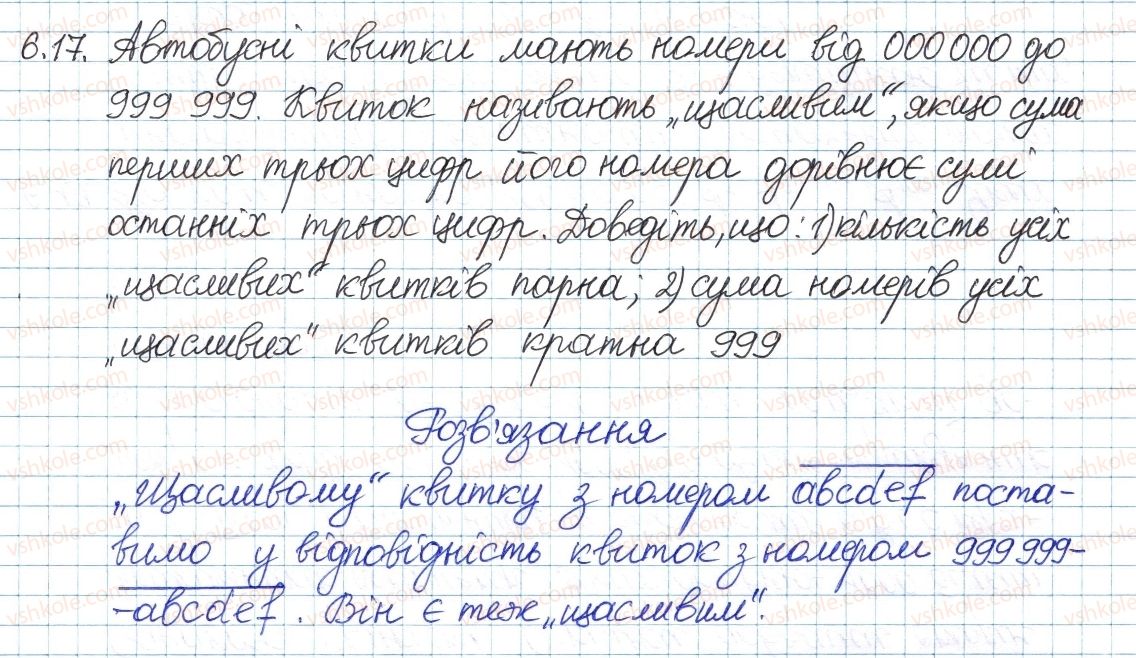 6.17. Автобусні квитки мають номери від 000 000 до
999 999. Квиток називають „щасливим“, якщо сума
перших трьох цифр його номера дорівнює сумі
останніх трьох цифр. Доведіть, що: 1) кількість усіх
„щасливих“ квитків парна; 2) сума номерів усіх
„щасливих“ квитків кратна 999
Розв'язання
„Щасливому“ квитку з номером abcdef поста-
вимо у відповідність квиток з номером 999 999-
-abcdef. Він є теж „щасливим“.